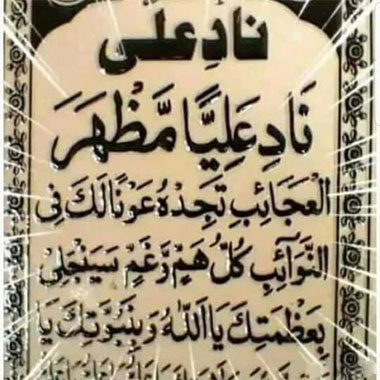 نادِعلی
نَادِ عَلِيًّا مَّظْهَرَ
الْعَجَائِبِ تَجِدْهُ عَوْنًا لَكَ فِي
النَّوَآئِبِ كُلُّ هَمٍّ وَّغَمٍّ سَيَنْجَلِيْ
بِعَظَمَتِكَ يَا اَللّٰهُ وَبِنُبُوَّتِكَ يَا